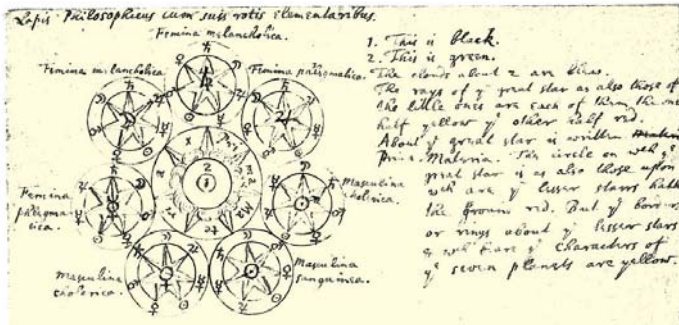 Lapis Philosophicus cum suis rotis elementaribus.
Femina melancholica.
Femina melancholica.
Femina phlegmatica.
Femina
phlegma=
tica.
Masculina
cholerica.
Masculina
cholerica.
Masculina
sanguinea.
2
1
1. This is black.
2. This is green.
The clouds about 2 are blue.
The rays of yᵉ great star as also those of
the little ones are each of them the one
half yellow yᵉ other half red.
About yᵉ great star is written
Prima Materia. The circle on wᶜʰ yᵉ
great star is as also those upon
wᶜʰ are yᵉ lesser starrs hath
the ground red. But yᵉ borders
or rings about yᵉ lesser stars
wᶜʰ are yᵉ characters of
yᵉ seven planets are yellow.